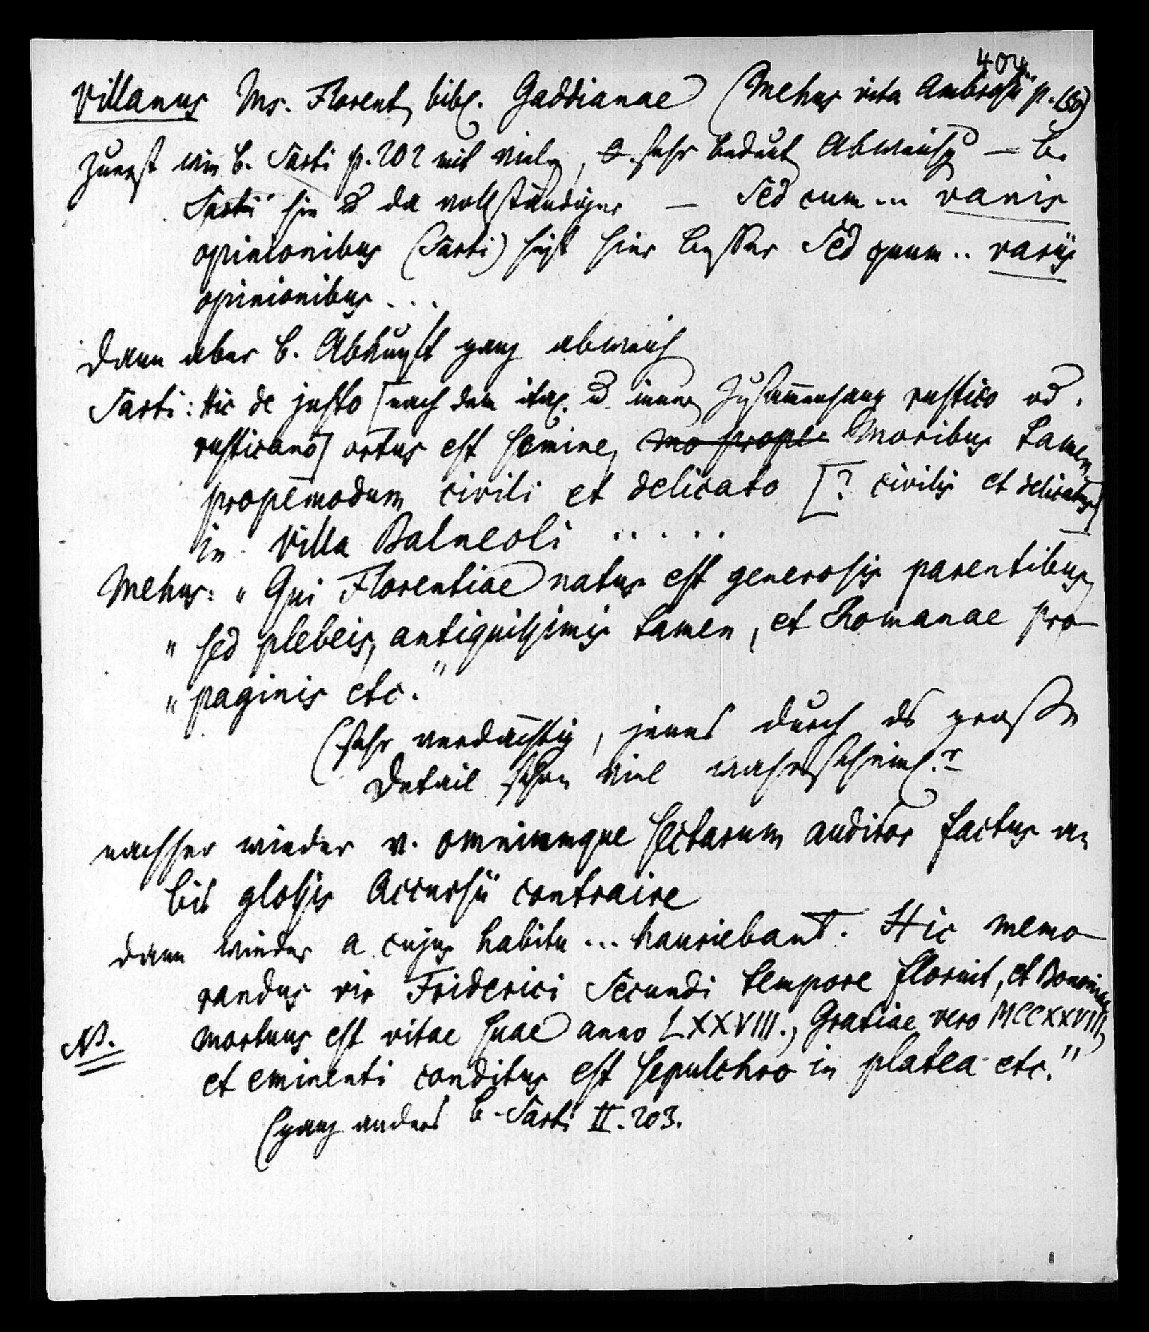 404
Villanus Ms. Florent. bibl. Gaddianae (Mehus vita Ambrosii p.
Zuerst wie b. Sarti p. 202 mit viele, sehr bedeut. Abweich — b.
Sarti hie u. da vollständiger — Sed cum ... vanis
opinionibus (Sarti) heißt hier besser Sed quum .. variis
opinionibus ...
Dann aber b. Abkunft ganz abweich
Sarti: hic de justo [nach dem ital. u. innern Zusammenhang rustico od.
rusticano] ortus est semine, Moribus tamen
propemodum civili et delicato [? civilis et delicatus]
in Villa Balneoli .....
Mehus: „Qui Florentiae natus est generosis parentibus,
„sed plebeis, antiquissimis tamen, et Romanae pro
„paginis etc."
(sehr verdächtig, jenes durch ds große
Detail schon viel wahrscheinl.r
nachher wieder v. omniumque sectarum auditor factus an
bis glossis Accursii contraire
dann wieder a cujus habitu ... hauriebant. Hic memo
randus vir Friderici Secundi tempore floruit, et Bononiae
NB. mortuus est vitae suae anno LXXVIII., Gratiae vero MCCXXVIII,
et eminenti conditus est sepulchro in platea etc."
(ganz anders b. Sarti II. 203.